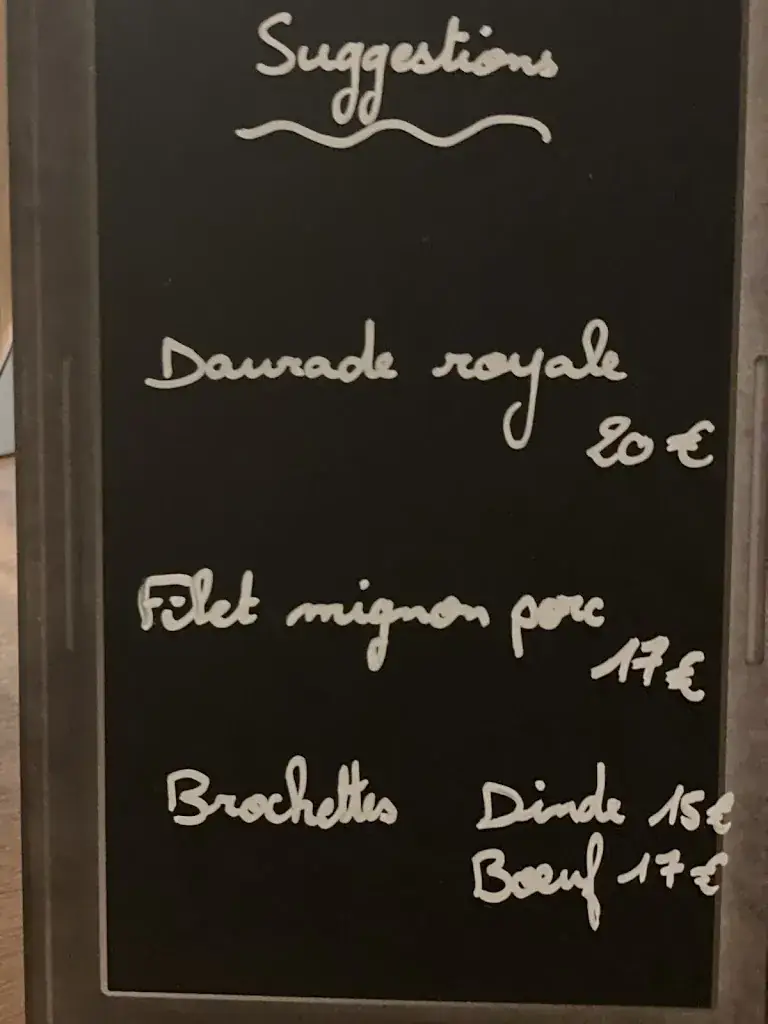 Suggestions
Daurade royale
20 €
Filet mignon porc
17 €
Brochettes Dinde 15 €
Bœuf 17 €